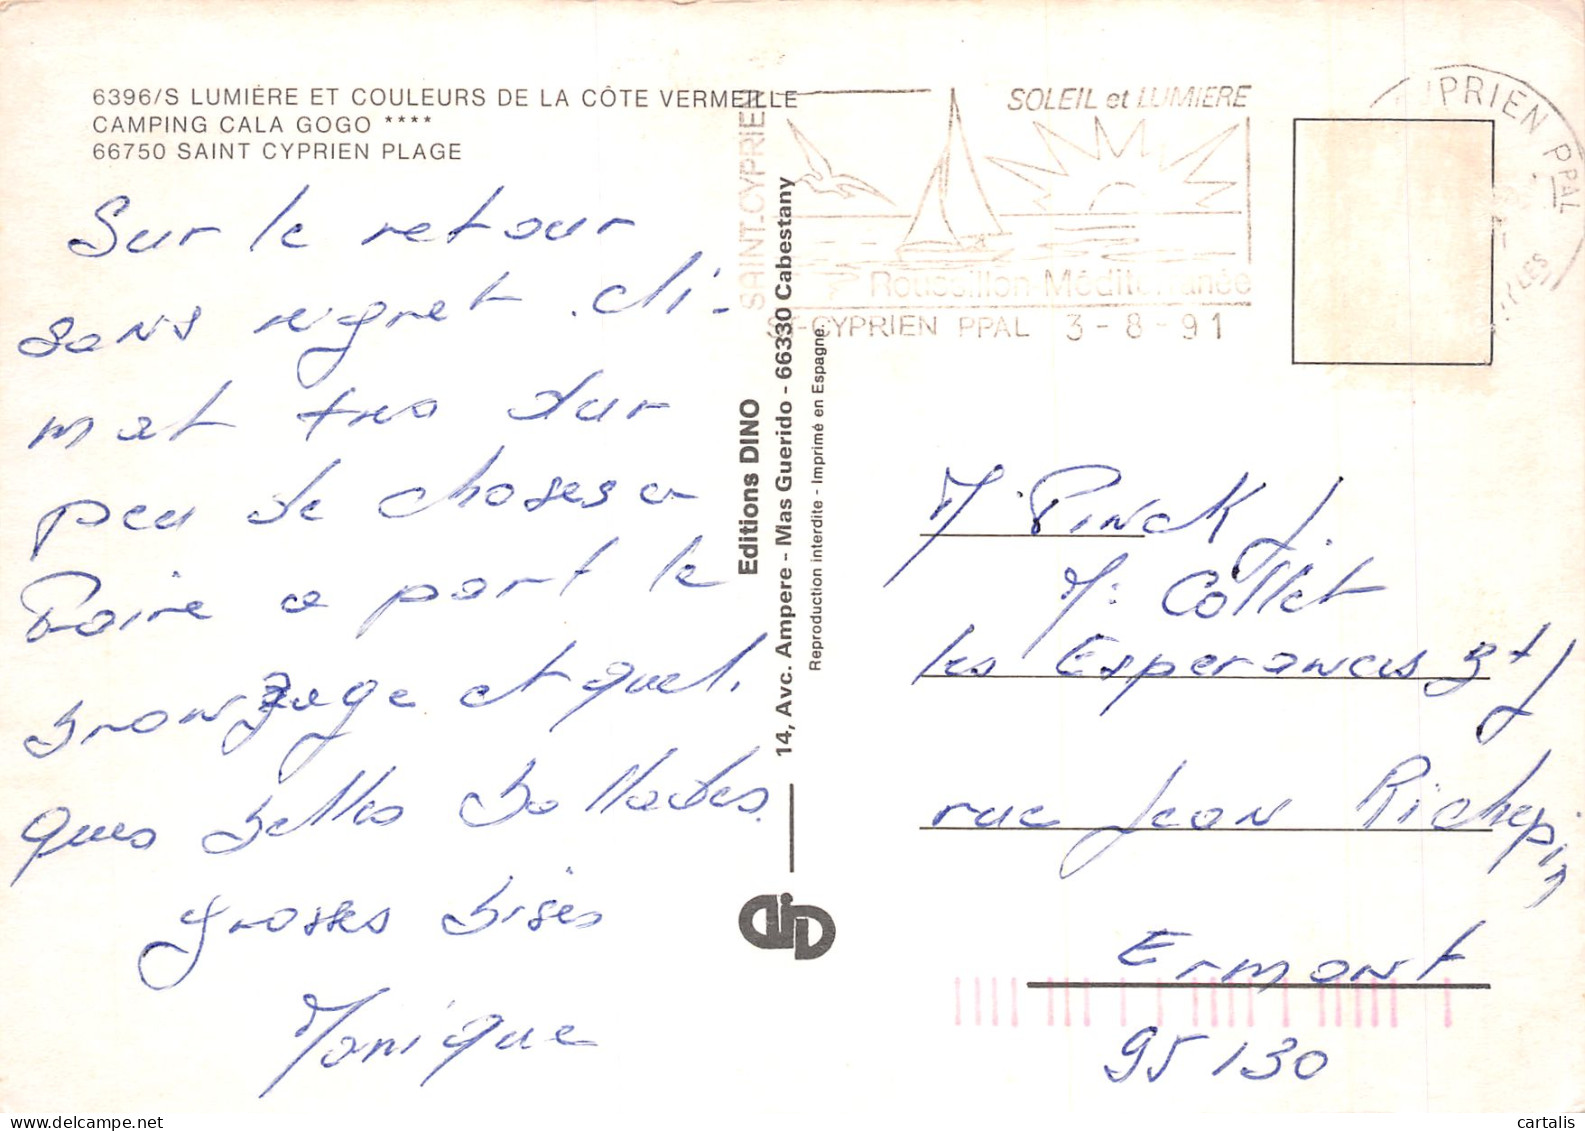 6396/S LUMIÈRE ET COULEURS DE LA CÔTE VERMEILLE
CAMPING CALA GOGO ****
66750 SAINT CYPRIEN PLAGE
Sur le retour
sans regret. cli-
mat tres dur
peu de choses a
Faire a part le
bronzage et quel.
ques belles ballades.
grosses bises
Monique
Editions DINO
14, Avc. Ampere - Mas Guerido - 66330 Cabestany
Reproduction interdite - Imprimé en Espagne.
SAINT-CYPRIEN
SOLEIL et LUMIERE
Roussillon Méditerranée
ST-CYPRIEN PPAL 3-8-91
YPRIEN PPAL
M. Pinck J.
M: Collet
les Esperances
rue Jean Richepin
Ermont
95130
cartalis